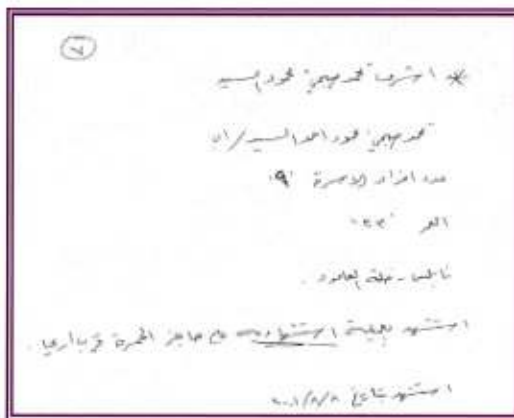 ٧
* اشرف "محمد صبحي" محمود السيد
"محمد صبحي" محمود احمد السيد / اب
عدد افراد الاسرة "٩"
العمر "٢٣"
نابلس - حلة العامود .
استشهد بعملية استشهادية على حاجز الحمرة قرب اريحا .
استشهد بتاريخ ٢٠٠١/٨/٨